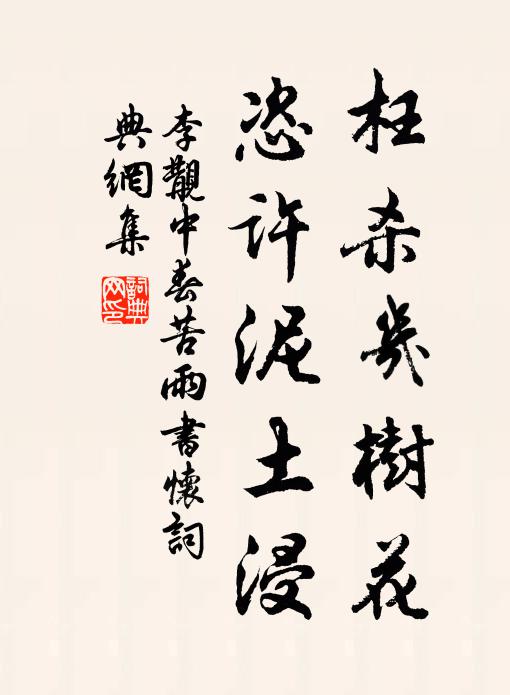 枉杀幾樹花
恣許泥土浸
李觀中春苦雨書懷詞
典網集
詞典网印